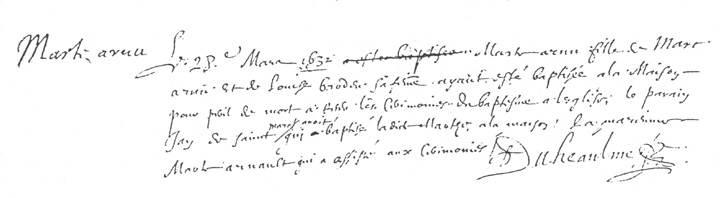 Marte arnu Le 25.e Mars 1632 a esté baptisée Marte arnu fille de Marc
arnu et de Louise sa feme ayant esté baptisée a la Maison
pour peril de mort a les Cerimonies du baptesme a leglise, le parain
Jay de Saint qui a baptisé ladicte Marthe, a la maison, la maraine
Marte arnault qui a assisté aux Cerimonies Duheaulme